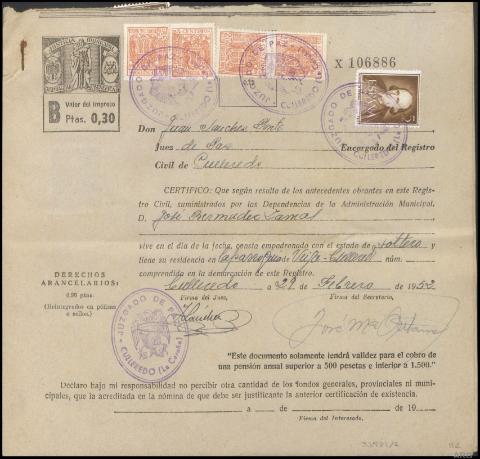 JUSTICIA MUNICIPAL
X 106886
B Valor del Impreso
Ptas. 0,30
JUZGADO DE PAZ
CULLEREDO
JUZGADO DE PAZ
CULLEREDO
JUZGADO DE
CULLEREDO
Don Juan Sanchez
Juez de Paz Encargado del Registro
Civil de Culleredo
CERTIFICO: Que según resulta de los antecedentes obrantes en este Regis-
tro Civil, suministrados por las Dependencias de la Administración Municipal.
D. José Bermudez Lamas
vive en el día de la fecha, consta empadronado con el estado de soltero y
tiene su residencia en núm.
comprendida en la demarcación de este Registro.
DERECHOS
ARANCELARIOS:
0,95 ptas.
(Reintegrados en póliza
o sellos.)
Culleredo a 29 de Febrero de 1952
Firma del Juez, Firma del Secretario,
JUZGADO DE PAZ
CULLEREDO (La Coruña)
José Mª
"Este documento solamente tendrá validez para el cobro de
una pensión anual superior a 500 pesetas e inferior a 1.500."
Declaro bajo mi responsabilidad no percibir otra cantidad de los fondos generales, provinciales ni muni-
cipales, que la acreditada en la nómina de que debe ser justificante la anterior certificación de existencia.
a de de 19
Firma del Interesado.
112
ARG